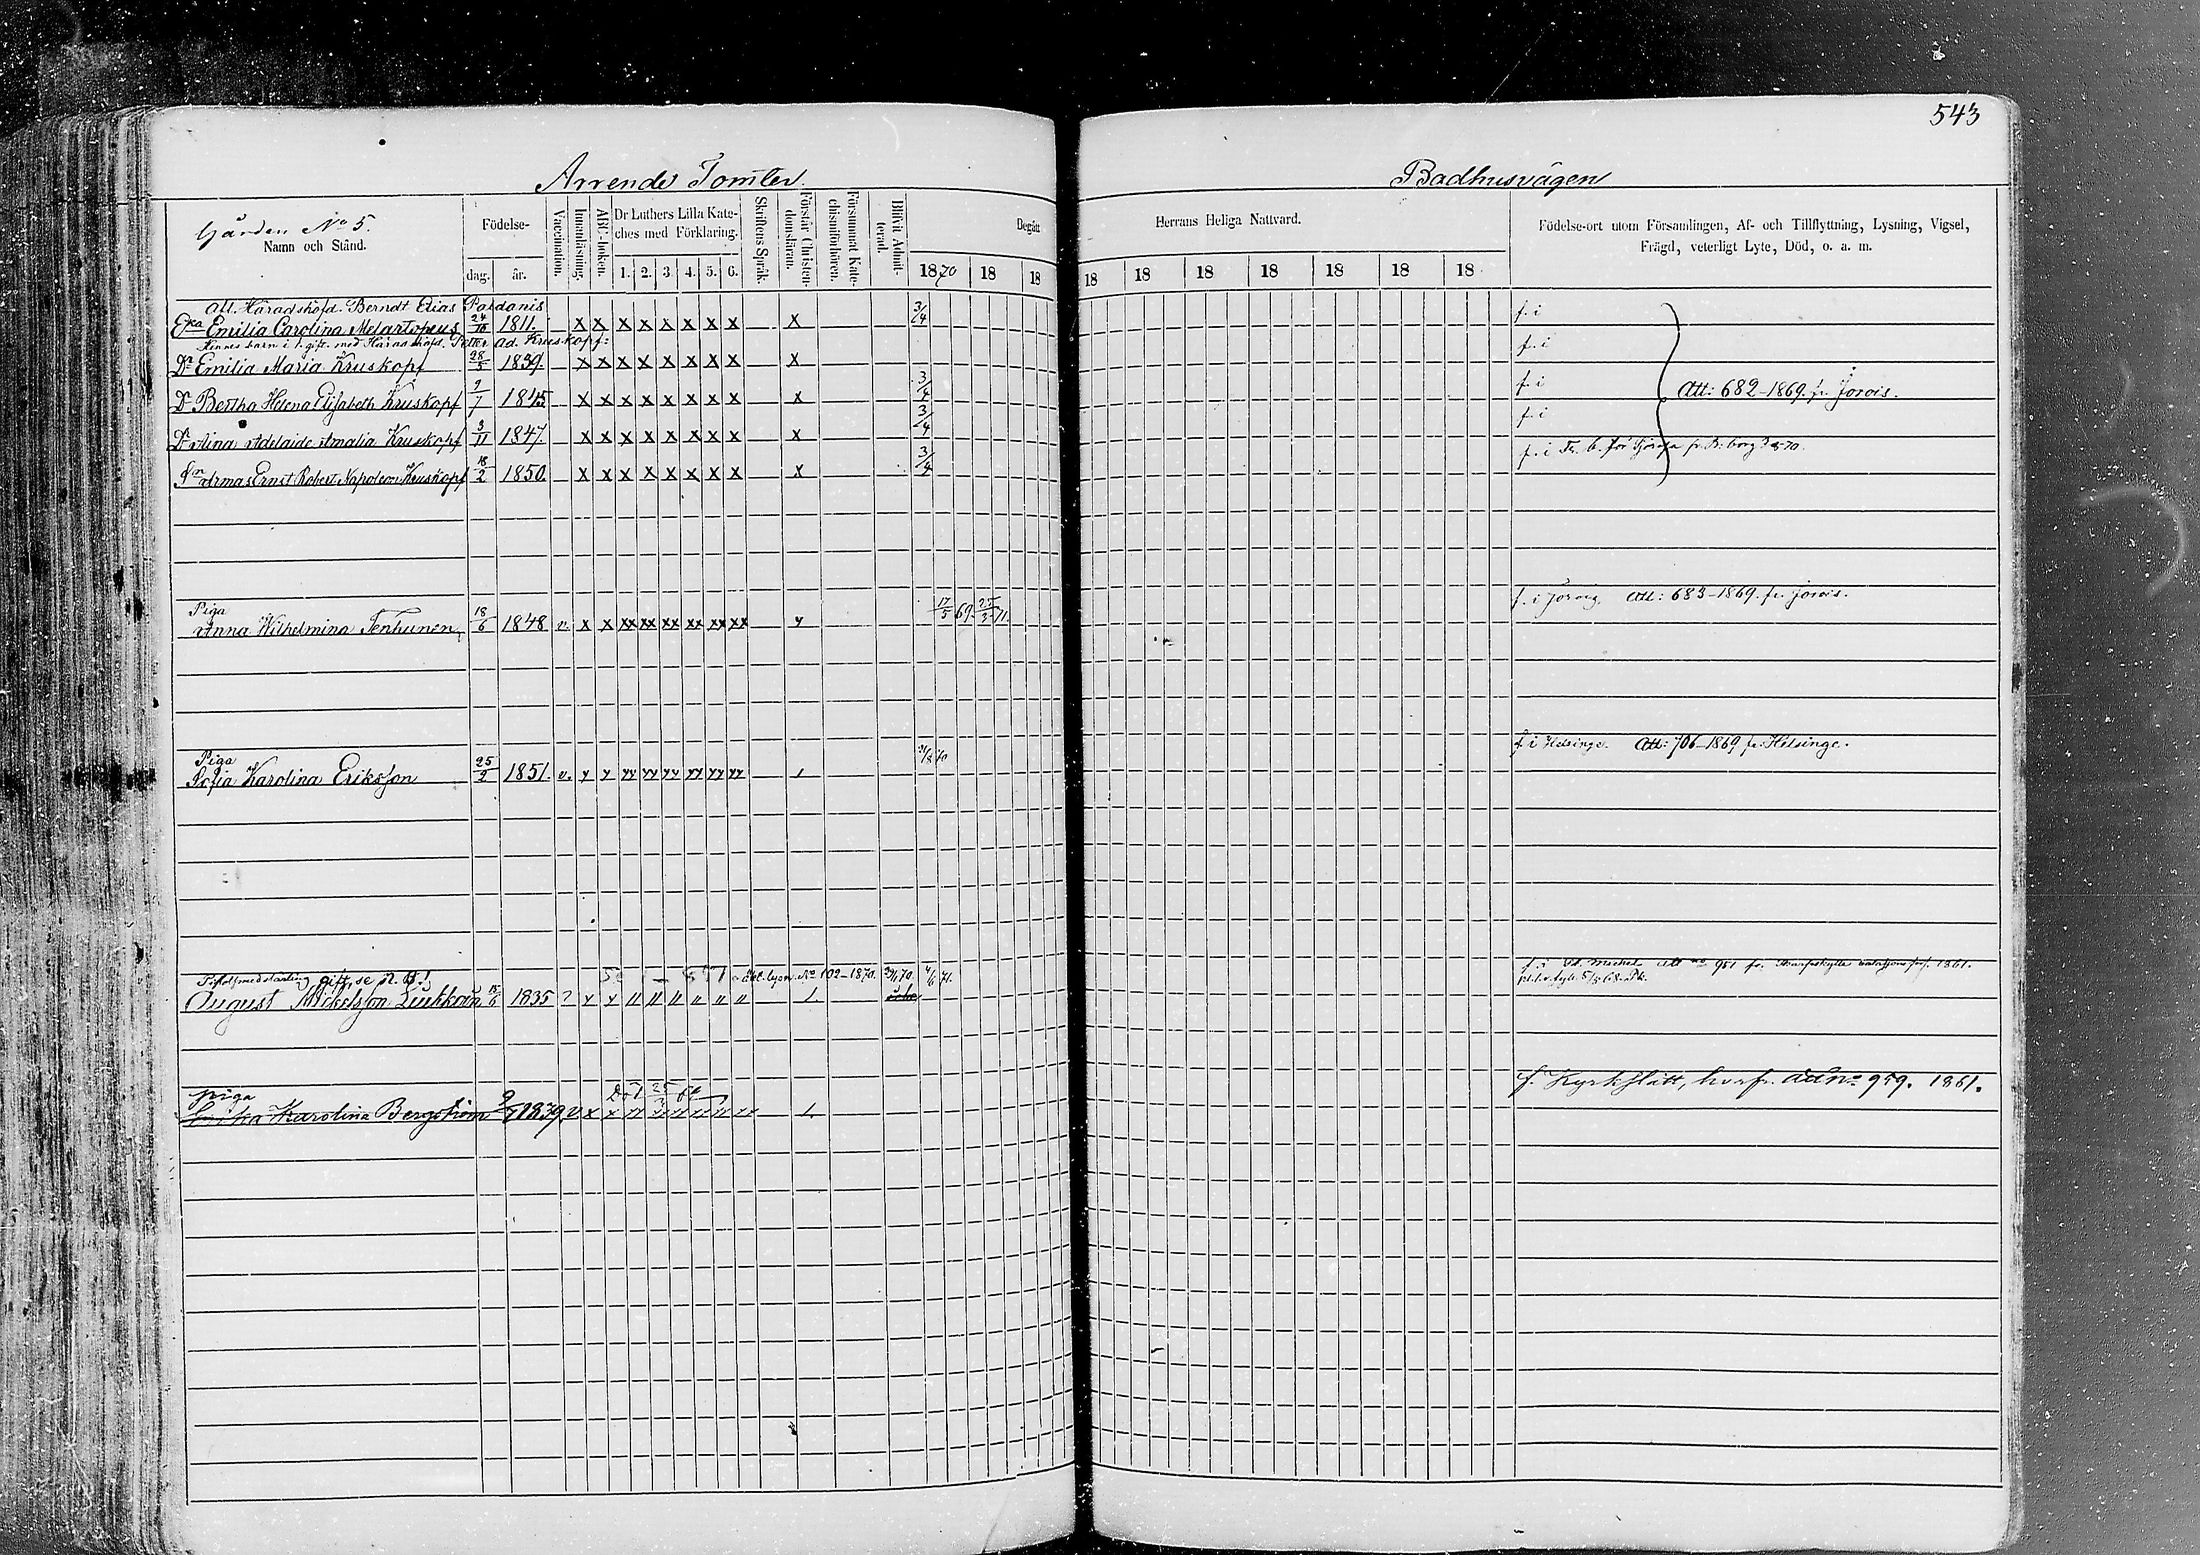 543
Arrende Tomter.
Badhusvägen
Gården No 5.
Namn och Stånd.
Födelse-
dag.
år.
Vaccination.
Innanläsning.
ABC-boken.
Dr Luthers Lilla Kate-
ches med Förklaring.
1. 2. 3. 4. 5. 6.
Skriftens Språk.
Förstår Christen-
domsläran.
Försummat Kate-
chismiförhören.
Blifvit Admit-
terad.
Begått
Herrans Heliga Nattvard.
1870 18 18 18 18 18 18 18 18 18
Födelse-ort utom Församlingen, Af- och Tillflyttning, Lysning, Vigsel,
Frägd, veterligt Lyte, Död, o. a. m.
Härads höfd. Berndt Elias
Emilia Carolina Melartopeus 24/10 1811. x x x x x x x x x 3/4 f. i
Hennes barn i 1. gift. med Häradshöfd. Petter Ad. Kruskopf:
Dr Emilia Maria Kruskopf 28/5 1839. x x x x x x x x x f. i
Dr Bertha Helena Elisabeth Kruskopf 9/7 1845 x x x x x x x x x 3/4 f. i Att: 682-1869. fr. Jorois.
Dr Aina Adelaide Amalia Kruskopf 3/11 1847. x x x x x x x x x 3/4 f. i
Sn Armas Ernst Robert Napoleon Kruskopf 18/2 1850. x x x x x x x x x 3/4 f. i
Piga
Anna Wilhelmina Tenhunen 18/6 1848 v. x x xx xx xx xx xx xx 17/5 69. 25/3 71. f. i Jorois. Att: 683-1869. fr. Jorois.
Piga
Sofia Karolina Eriksson 25/2 1851. v. f. i Helsinge. Att: 706-1869 fr. Helsinge.
gift, se
August Mickelsson 1835 No 102-1870. St. Michel 951 fr. 1861.
piga
Karolina Bergström 1839 Död 25/3 f. Kyrkslätt, 959. 1861.